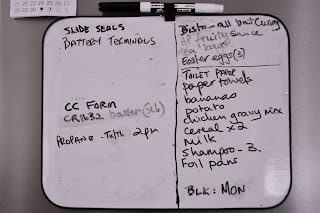 21 22 23 24 25 26 27
28 29 30 31
SLIDE SEALS
BATTERY TERMINALS
CC FORM
CR1632 batter (3x6)
PROPANE - Tu/Th 2pm
Bisto - all but Curry
HP fruity sauce
tea bags!
Easter eggs (3)
TOILET PAPER
paper towels
bananas
potato
chicken gravy mix
cereal x2
Milk
Shampoo - B.
Foil pans
BLK: MON